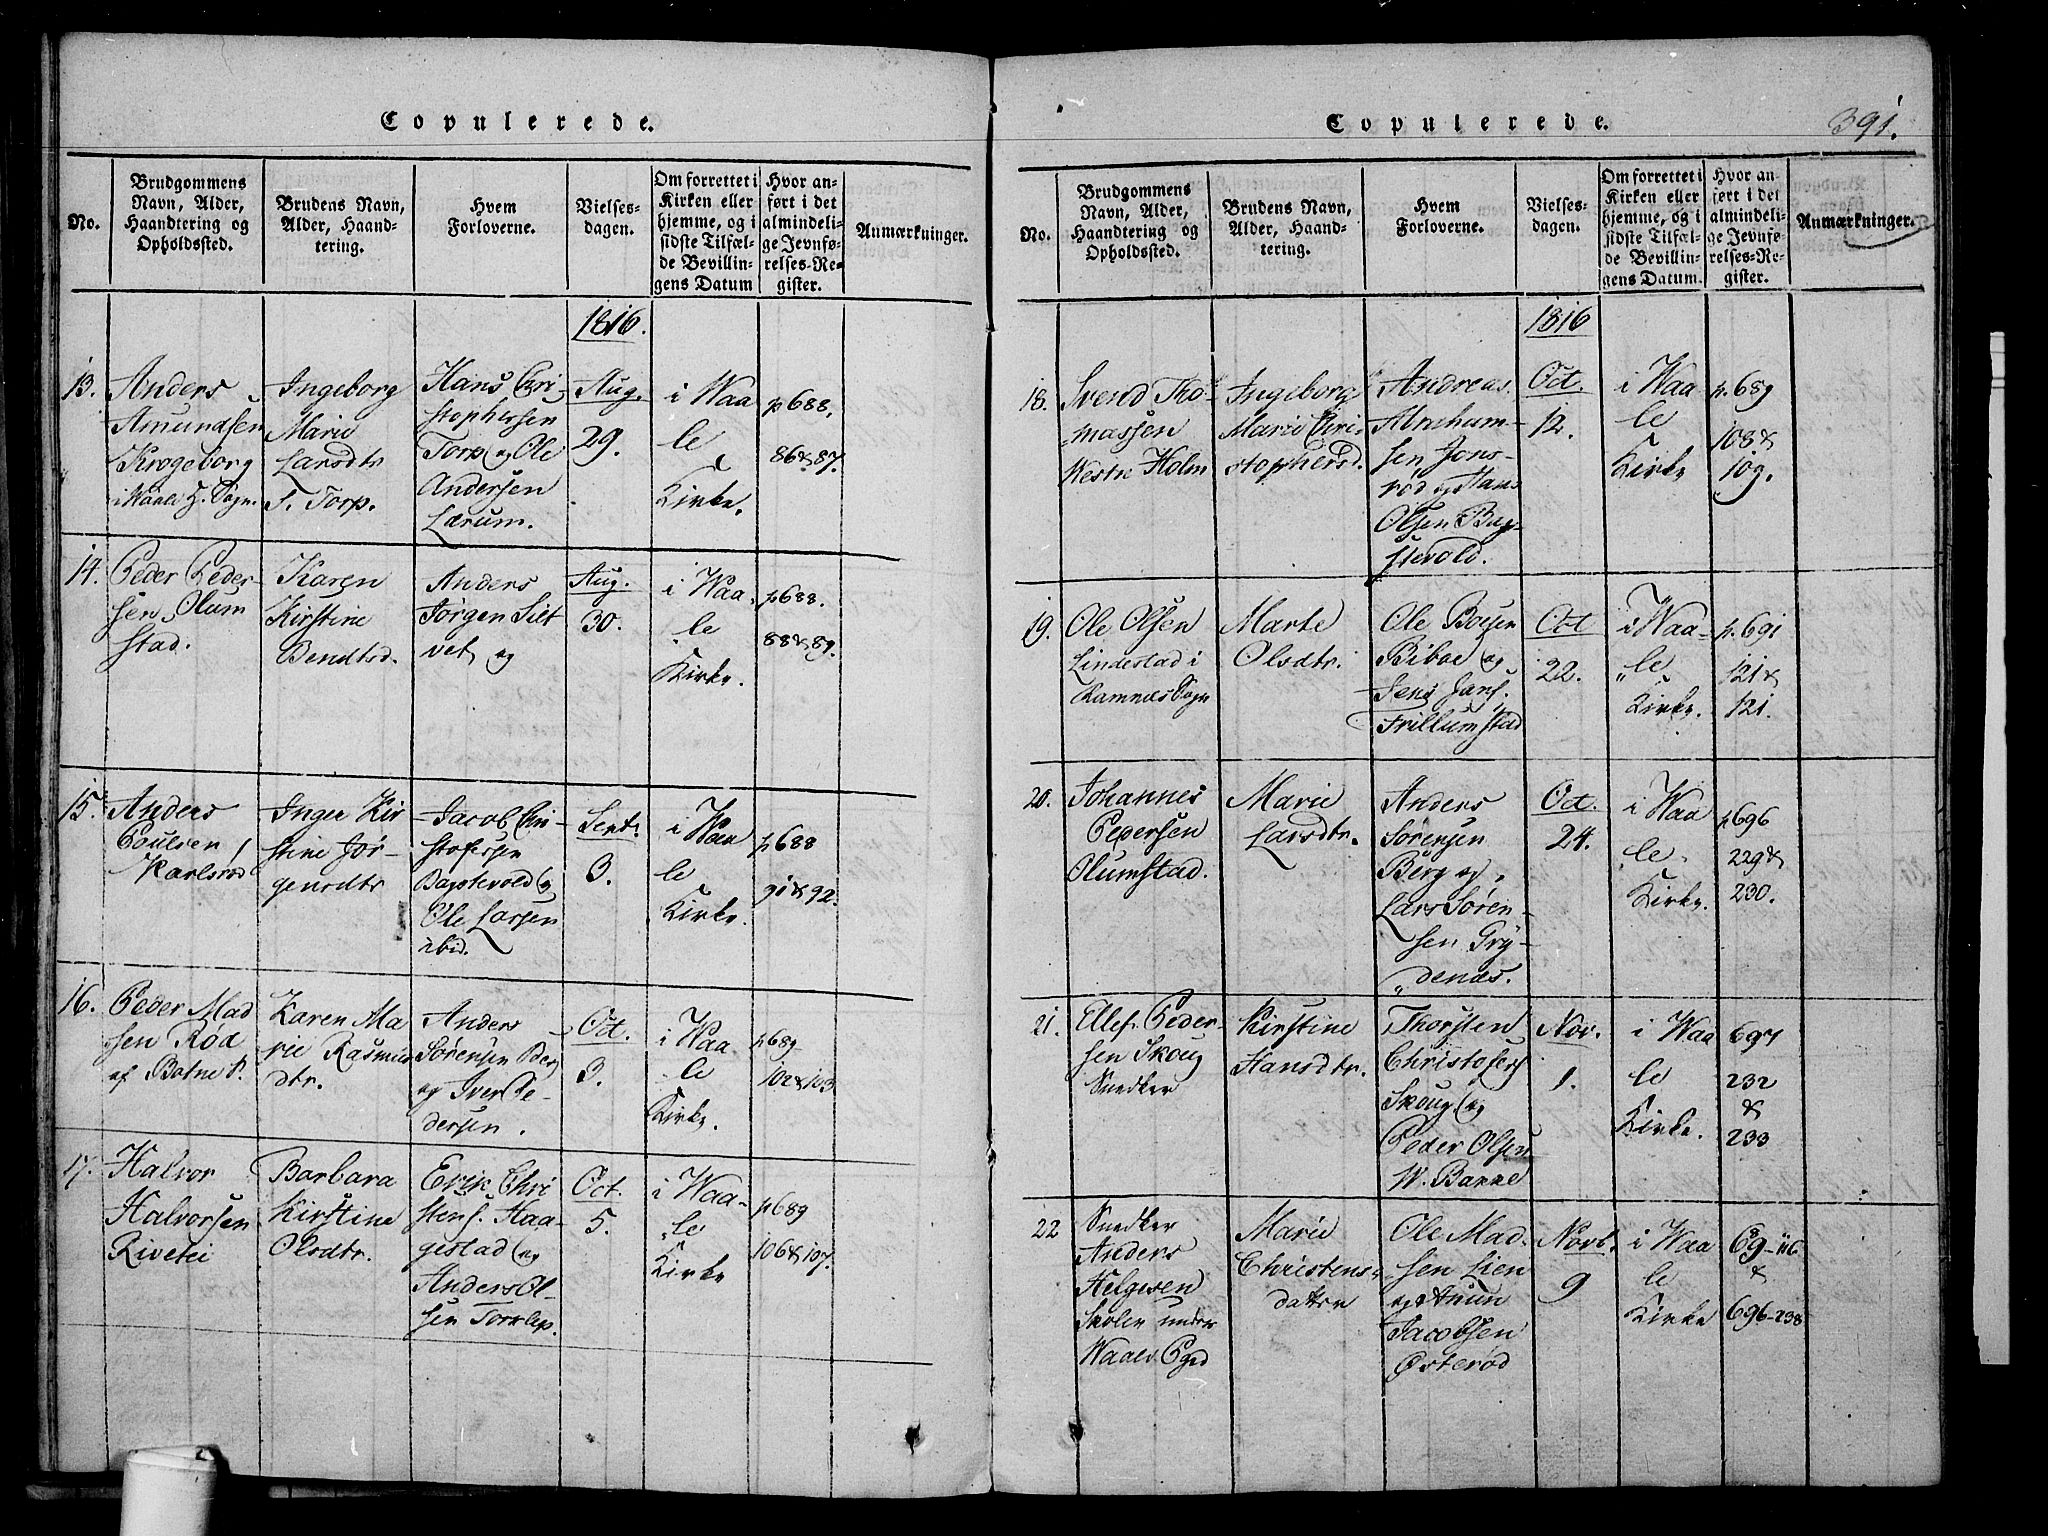 Copulerede.
No.
Brudgommens
Navn, Alder,
Haandtering og
Opholdssted.
Brudens Navn,
Alder, Haand-
tering.
Hvem
Forloverne.
Vielses-
dagen.
Om forrettet i
Kirken eller
hjemme, og i
sidste Tilfæl-
de Bevillin-
gens Datum
Hvor an-
ført i det
almindeli-
ge Jevnfø-
relses-Re-
gister.
Anmærkninger.
1816.
13.
Anders
Amundsen
Krogeborg
i Waale H. Sogn
Ingeborg
Marie
Larsdtr
S. Torp.
Hans Chri-
stophersen
Torp og Ole
Andersen
Lærum.
Aug.
29.
i Waa
le
Kirke.
p 688.
86 & 87.
14.
Peder Peder-
sen Olum
stad.
Karen
Kirstine
Bendtsd.
Anders
Jørgen Silt
vet og
Aug.
30.
i Waa
le
Kirke.
p 688.
88 & 89.
15.
Anders
Poulsen
Karlsrød
Inger Kir
stine Jør-
gensdtr
Jacob Chri-
stofersen
Bagstevold og
Ole Larsen
ibid.
Sept.
3.
i Waa
le
Kirke.
p 688
91 & 92.
16.
Peder Mad
sen Rød
af Botne P.
Karen Ma
rie Rasmus
dtr.
Anders
Sørensen Berg
og Iver Pe-
dersen.
Oct.
3.
i Waa
le
Kirke.
p 689
102 & 103
17.
Halvor
Halvorsen
Rivetei
Barbara
Kirstine
Olsdtr.
Erik Chri
stens. Haa-
gestad og
Anders Ol-
sen Torklep.
Oct.
5.
i Waa-
le
Kirke
p 689
106 & 107.
Copulerede.
391.
No.
Brudgommens
Navn, Alder,
Haandtering og
Opholdssted.
Brudens Navn,
Alder, Haand-
tering.
Hvem
Forloverne.
Vielses-
dagen.
Om forrettet i
Kirken eller
hjemme, og i
sidste Tilfæl-
de Bevillin-
gens Datum.
Hvor an-
ført i det
almindeli-
ge Jevnfø-
relses-Re-
gister.
Anmærkninger.
1816
18.
Svend Tho-
massen
Westre Holm
Ingeborg
Marie Chri-
stophersd.
Andreas
Abraham-
sen Jons-
rød og Hans
Olsen Bag-
stevold.
Oct.
12.
i Waa
le
Kirke
p. 689
108 &
109.
19.
Ole Olsen
Lindestad i
Ramnæs Sogn
Marte
Olsdtr.
Ole Boesen
Biboe og
Jens Jans.
Trillumstad
Oct
22.
i Waa-
le
Kirke.
p. 691
121 &
121.
20.
Johannes
Pedersen
Olumstad.
Marie
Larsdtr.
Anders
Sørensen
Berg og
Lars Søren-
sen Gry-
denæs.
Oct.
24.
i Waa
le
Kirke.
p 696
229 &
230.
21.
Ellef Peder-
sen Skoug
Snedker
Kirstine
Hansdtr.
Thorsten
Christofers
Skoug og
Peder Olsen
W. Bakke
Nov.
1.
i Waa
le
Kirke.
697
232
&
233
22
Snedker
Anders
Helgesen
Skolen under
Waale Pgrd
Marie
Christens-
datter
Ole Mad
sen Lien
og Anun
Jacobsen
Østerød
Novb.
9
i Waa
le
Kirke
689-116
&
696-238